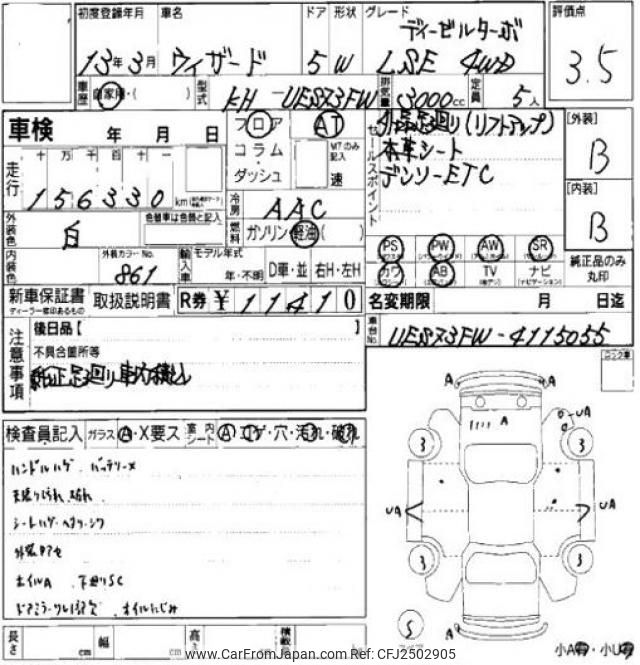 初度登録年月 車名 ドア 形状 グレード 評価点
13年3月 ウィザード 5 W ディーゼルターボ
LSE 4WD 3.5
車歴 自家用・( ) 型式 KH-UES73FW 排気量 3000cc 定員 5人
車検 年 月 日
フロア AT
コラム・ダッシュ M7のみ記入 速
セールスポイント
社外足廻り(リフトアップ)
本革シート
デンソーETC
[外装]
B
[内装]
B
走行 十 万 千 百 十 一
156330 km
冷房 AAC
燃料 ガソリン 軽油 ( )
外装色 白 色替車は色替と記入
内装色 外装カラーNo. 861
輸入車 モデル年式 年・不明 D車・並 右H・左H
PS PW AW SR
カワ AB TV ナビ
純正品のみ丸印
新車保証書 取扱説明書 R券 ¥11410
ディーラー捺印あるもの
名変期限 月 日迄
車台No. UES73FW-4115055
注意事項
後日品【 】
不具合箇所等
純正足廻り車内積込
検査員記入 ガラス A・X要ス 室内シート A・コゲ・穴・汚れ・破れ
ハンドルハゲ バッテリーメ
天張り汚れ
外装キズ多
ホイルA 下廻りSC
オイルにじみ
A A
A
UA
3 3
UA UA
3 3
S
A A
小A ・小U
長さ 幅 高さ 積載量
www.CarFromJapan.com Ref: CFJ2502905